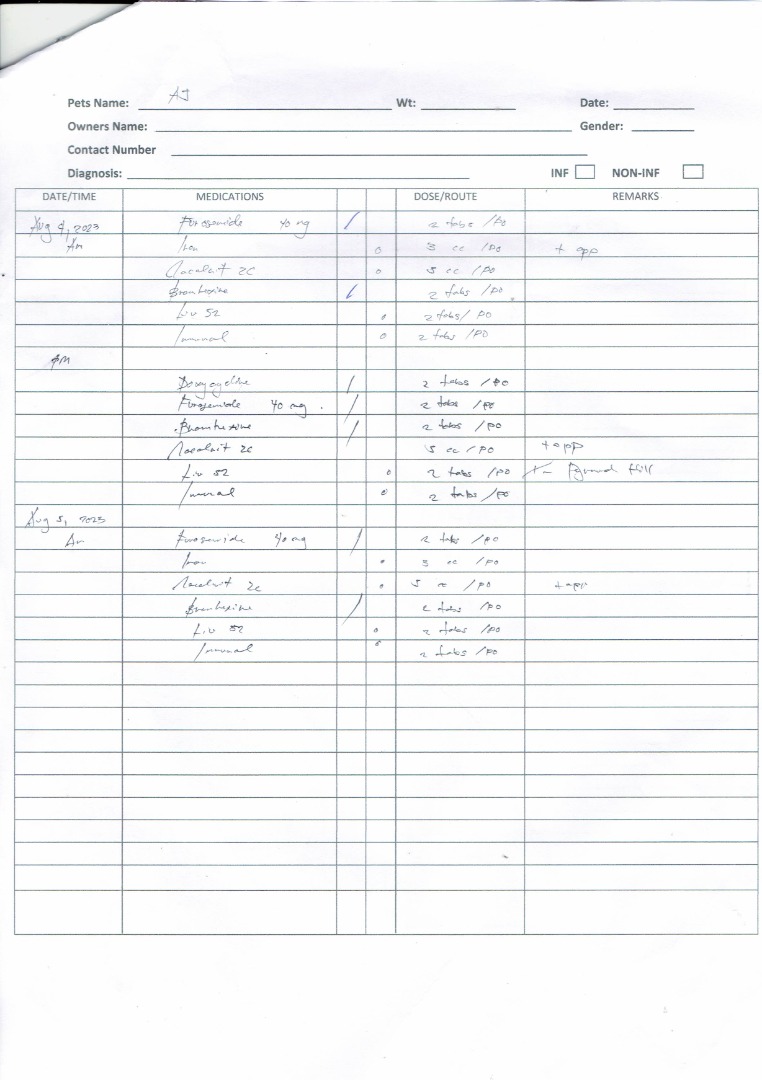 Pets Name: AJ Wt: Date:
Owners Name: Gender:
Contact Number
Diagnosis: INF NON-INF
DATE/TIME MEDICATIONS DOSE/ROUTE REMARKS
Aug 4, 2023 Furosemide 40 mg / 2 tabs /PO
AM Iron o 3 cc /PO + app
2C o 5 cc /PO
Bromhexine / 2 tabs /PO
Liv 52 o 2 tabs/ PO
Immunal o 2 tabs /PO
PM
Doxycycline / 2 tabs /PO
Furosemide 40 mg / 2 tabs /PO
Bromhexine / 2 tabs /PO
2C 5 cc /PO + app
Liv 52 o 2 tabs /PO
Immunal o 2 tabs /PO
Aug 5, 2023
AM Furosemide 40 mg / 2 tabs /PO
Iron o 3 cc /PO
2C o 5 cc /PO + app
Bromhexine / 2 tabs /PO
Liv 52 o 2 tabs /PO
Immunal o 2 tabs /PO